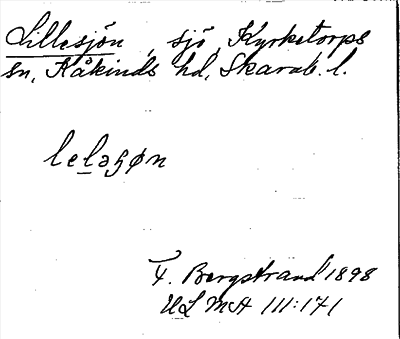 Lillesjön, sjö, Kyrketorps
sn, Kåkinds hd, Skarab. l.
lelaɧøn
F. Bergstrand 1898
ULMA 111:171